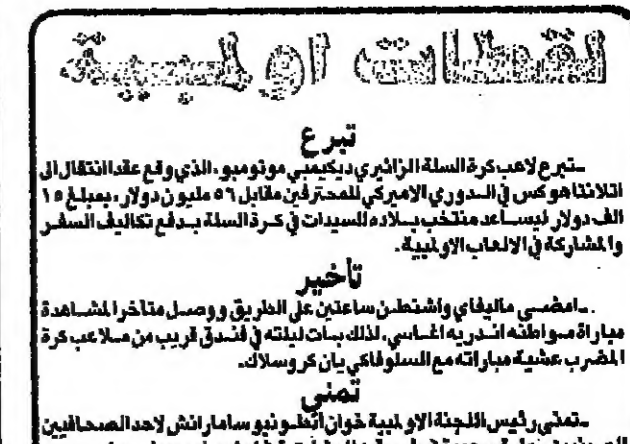 لقطات اولمبية
تبرع
ـ تبرع لاعب كرة السلة الزائيري ديكيمبي موتومبو، الذي وقع عقدا انتقال الى
اتلانتا هوكس في الدوري الاميركي للمحترفين مقابل ٥٦ مليون دولار، بمبلغ ١٥
الف دولار ليساعد منتخب بلاده للسيدات في كرة السلة بدفع تكاليف السفر
والمشاركة في الالعاب الاولمبية.
تأخير
ـ امضى ماليفاي واشنطن ساعتين على الطريق ووصل متاخرا لمشاهدة
مباراة مواطنه اندريه اغاسي، لذلك بات ليلته في فندق قريب من ملاعب كرة
المضرب عشية مباراته مع السلوفاكي يان كروسلاك.
تمنى
ـ تمنى رئيس اللجنة الاولمبية خوان انطونيو سامارانش لاحد الصحافيين